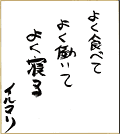 よく食べて
よく働いて
よく寝る
イルマリ